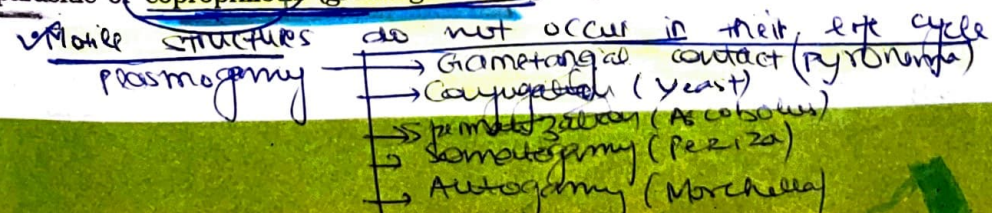 coprophilous
Motile structures do not occur in their life cycle
Plasmogamy → Gametangial contact (Pyronema)
→ Conjugation (Yeast)
→ Spermatization (Ascobolus)
→ Somatogamy (Peziza)
→ Autogamy (Morchella)